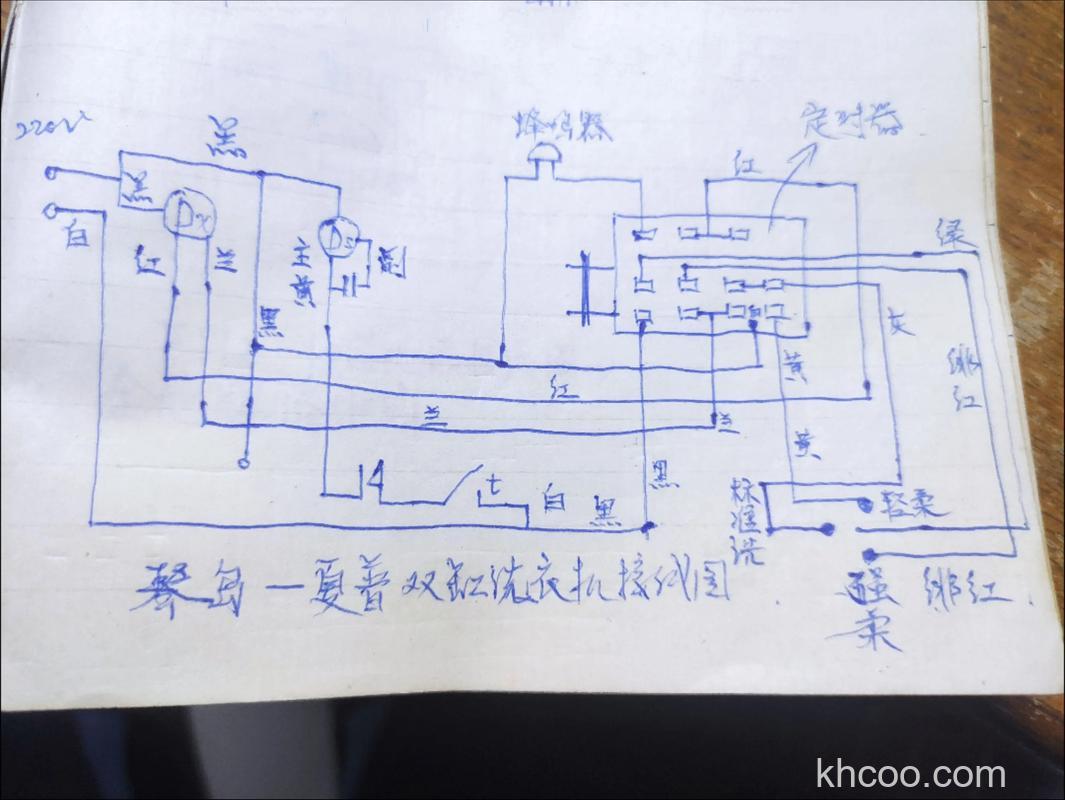 220V
黑
蜂鸣器
定时器
红
黑
D
白
红
兰
D
黄
绿
黑
灰
黄
绯
红
红
兰
兰
黄
黑
t
白
黑
标
准
洗
轻柔
琴岛—夏普双缸洗衣机接线图
强
柔
绯红
khcoo.com